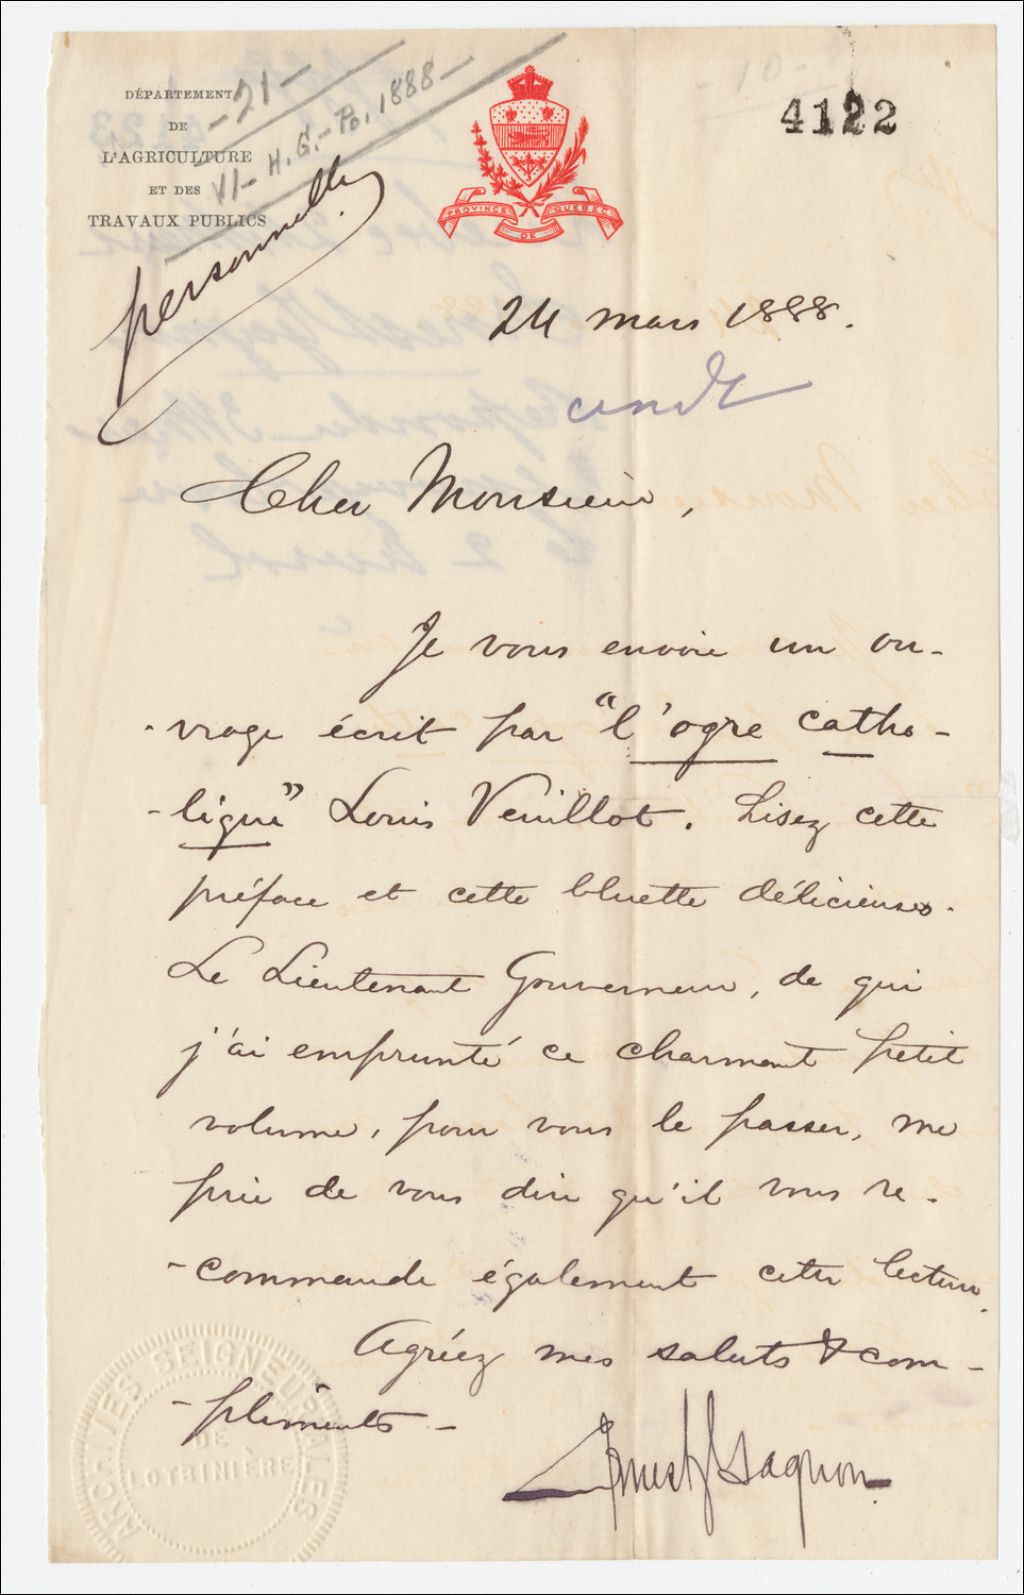 DÉPARTEMENT
DE
L'AGRICULTURE
ET DES
TRAVAUX PUBLICS
- 21 -
VI - H. G. - Po, 1888 -
personnelle.
PROVINCE DE QUEBEC
4122
24 mars 1888.
Cher Monsieur,
Je vous envoie un ou-
-vrage écrit par "l'ogre catho-
-lique" Louis Veuillot. Lisez cette
préface et cette bluette délicieuses.
Le Lieutenant Gouverneur, de qui
j'ai emprunté ce charmant petit
volume, pour vous le passer, me
prie de vous dire qu'il vous re-
-commande également cette lecture.
Agréez mes saluts & com-
-pliments -
Ernest Gagnon
ARCHIVES SEIGNEURIALES
DE
LOTBINIÈRE